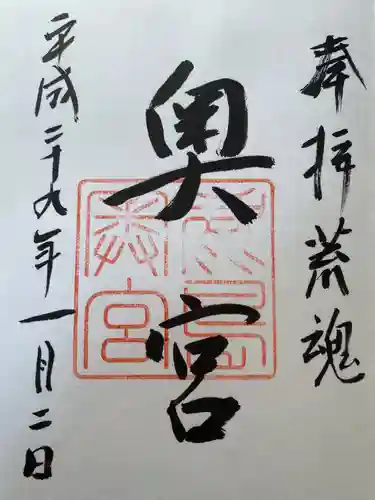 奉拝荒魂
奥宮
鹿島奥宮
平成二十九年一月二日